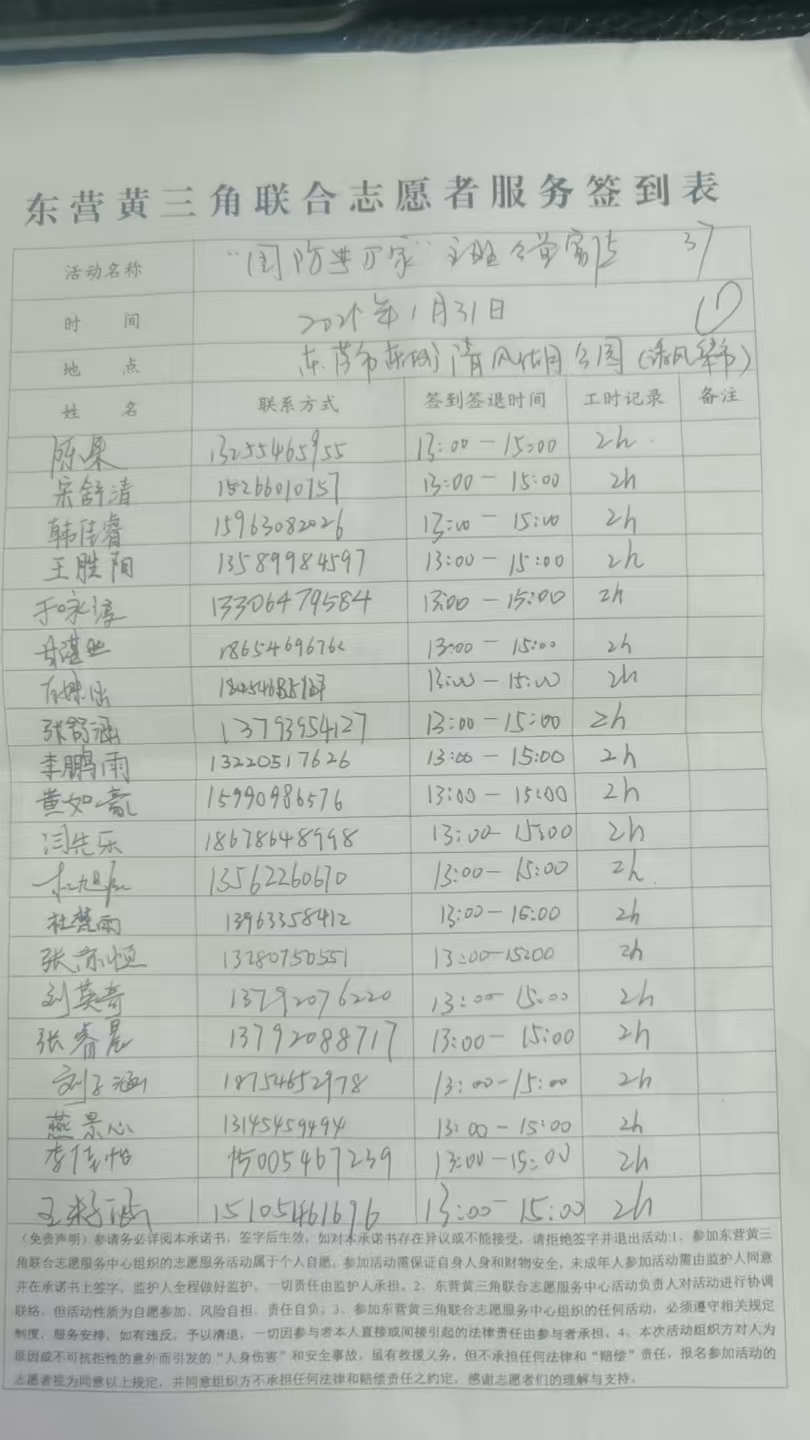 东营黄三角联合志愿者服务签到表
活动名称 "国防进万家" 37
时 间 2025年1月31日 (1)
地 点 东营市东城 清风湖公园
姓 名 联系方式 签到签退时间 工时记录 备注
陈果 13255465955 13:00-15:00 2h
宋舒清 15266010757 13:00-15:00 2h
韩佳睿 15963082026 13:00-15:00 2h
王胜阳 13589984597 13:00-15:00 2h
于咏淳 13306479584 13:00-15:00 2h
18654696762 13:00-15:00 2h
13:00-15:00 2h
张舒涵 13793954127 13:00-15:00 2h
李鹏雨 13220517626 13:00-15:00 2h
黄如意 15990986576 13:00-15:00 2h
闫先乐 18678648998 13:00-15:00 2h
13562260670 13:00-15:00 2h
杜梵雨 13963358412 13:00-15:00 2h
张亦恒 13280750551 13:00-15:00 2h
刘英奇 13792076220 13:00-15:00 2h
张睿晨 13792088717 13:00-15:00 2h
刘子涵 18754652978 13:00-15:00 2h
燕景心 13145459494 13:00-15:00 2h
李佳怡 15005467239 13:00-15:00 2h
王籽涵 15105461696 13:00-15:00 2h
(免责声明)参请务必详阅本承诺书,签字后生效,如对本承诺书存在异议或不能接受,请拒绝签字并退出活动:1、参加东营黄三
角联合志愿服务中心组织的志愿服务活动属于个人自愿,参加活动需保证自身人身和财物安全,未成年人参加活动需由监护人同意
并在承诺书上签字,监护人全程做好监护,一切责任由监护人承担。2、东营黄三角联合志愿服务中心活动负责人对活动进行协调
联络,但活动性质为自愿参加、风险自担、责任自负。3、参加东营黄三角联合志愿服务中心组织的任何活动,必须遵守相关规定
制度,服务安排,如有违反,予以清退,一切因参与者本人直接或间接引起的法律责任由参与者承担。4、本次活动组织方对人为
原因或不可抗拒性的意外而引发的"人身伤害"和安全事故,虽有救援义务,但不承担任何法律和"赔偿"责任,报名参加活动的
志愿者视为同意以上规定,并同意组织方不承担任何法律和赔偿责任之约定,感谢志愿者们的理解与支持。